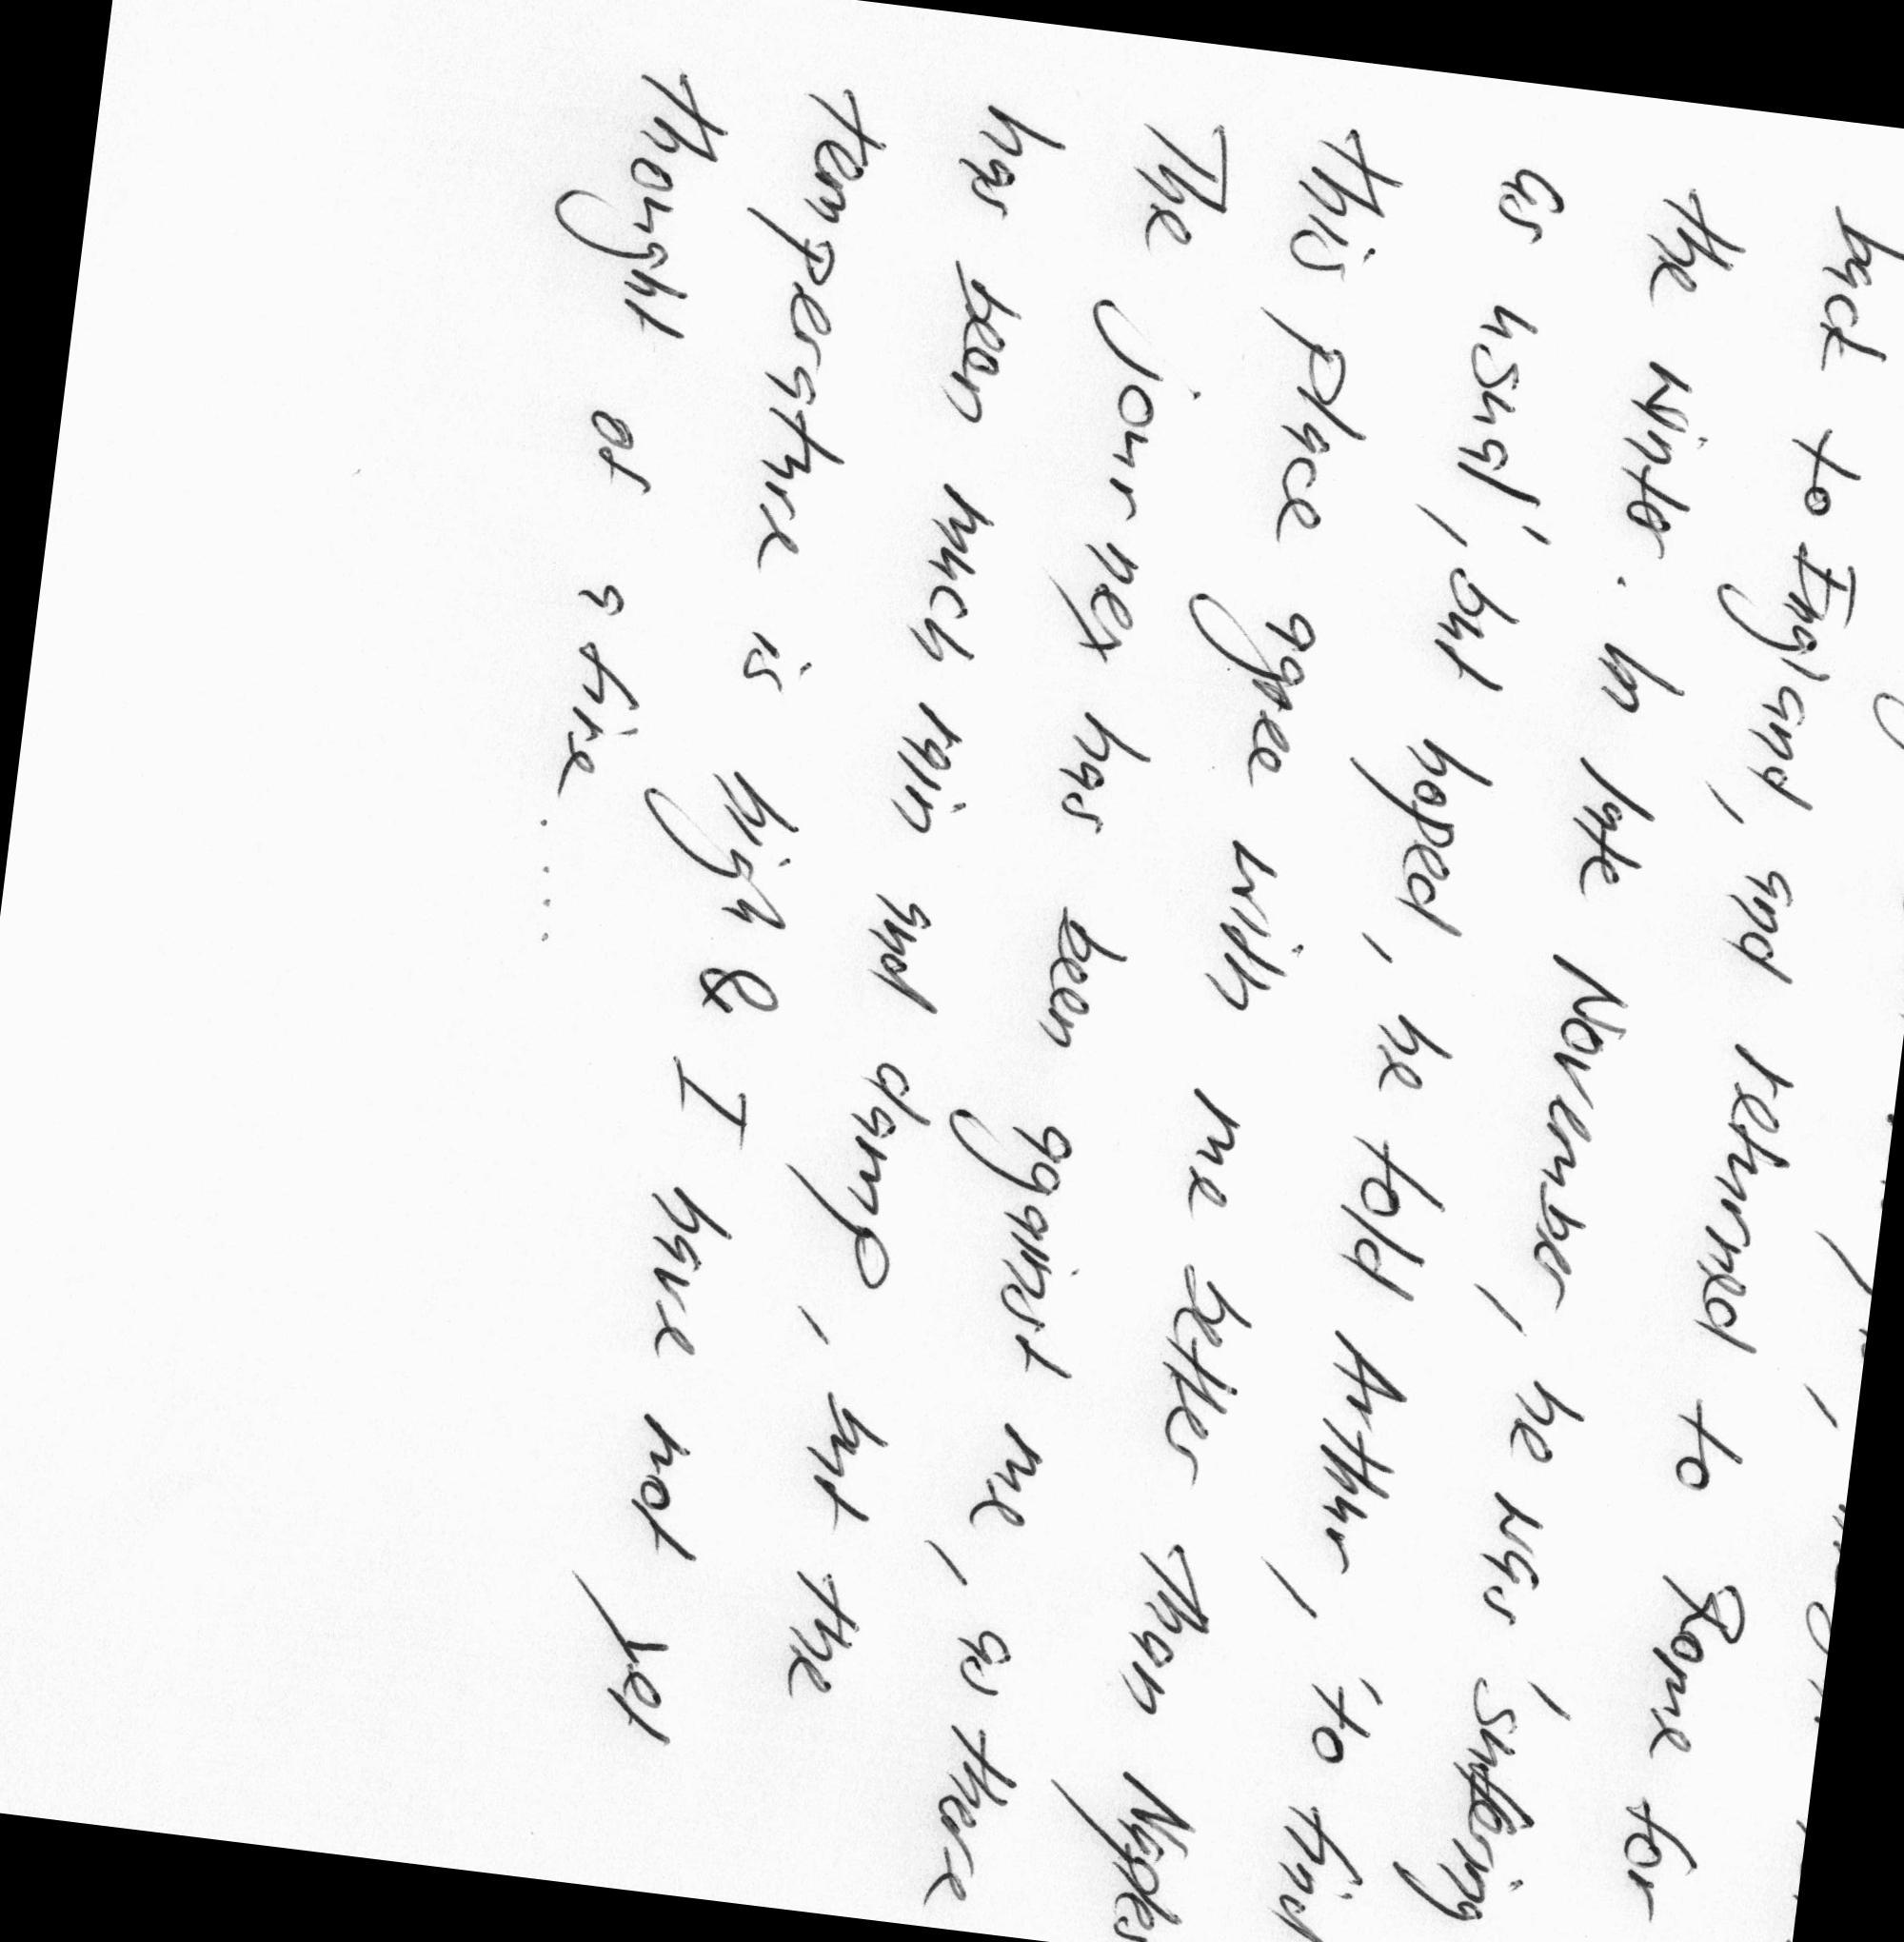 back to England, and returned to Rome for
the Winter. In late November, he was 'suffering
as usual', but hoped, he told Arthur, 'to find
this place agree with me better than Naples
The journey has been against me, as there
has been much rain and damp, but the
temperature is high & I have not yet
thought of a fire....